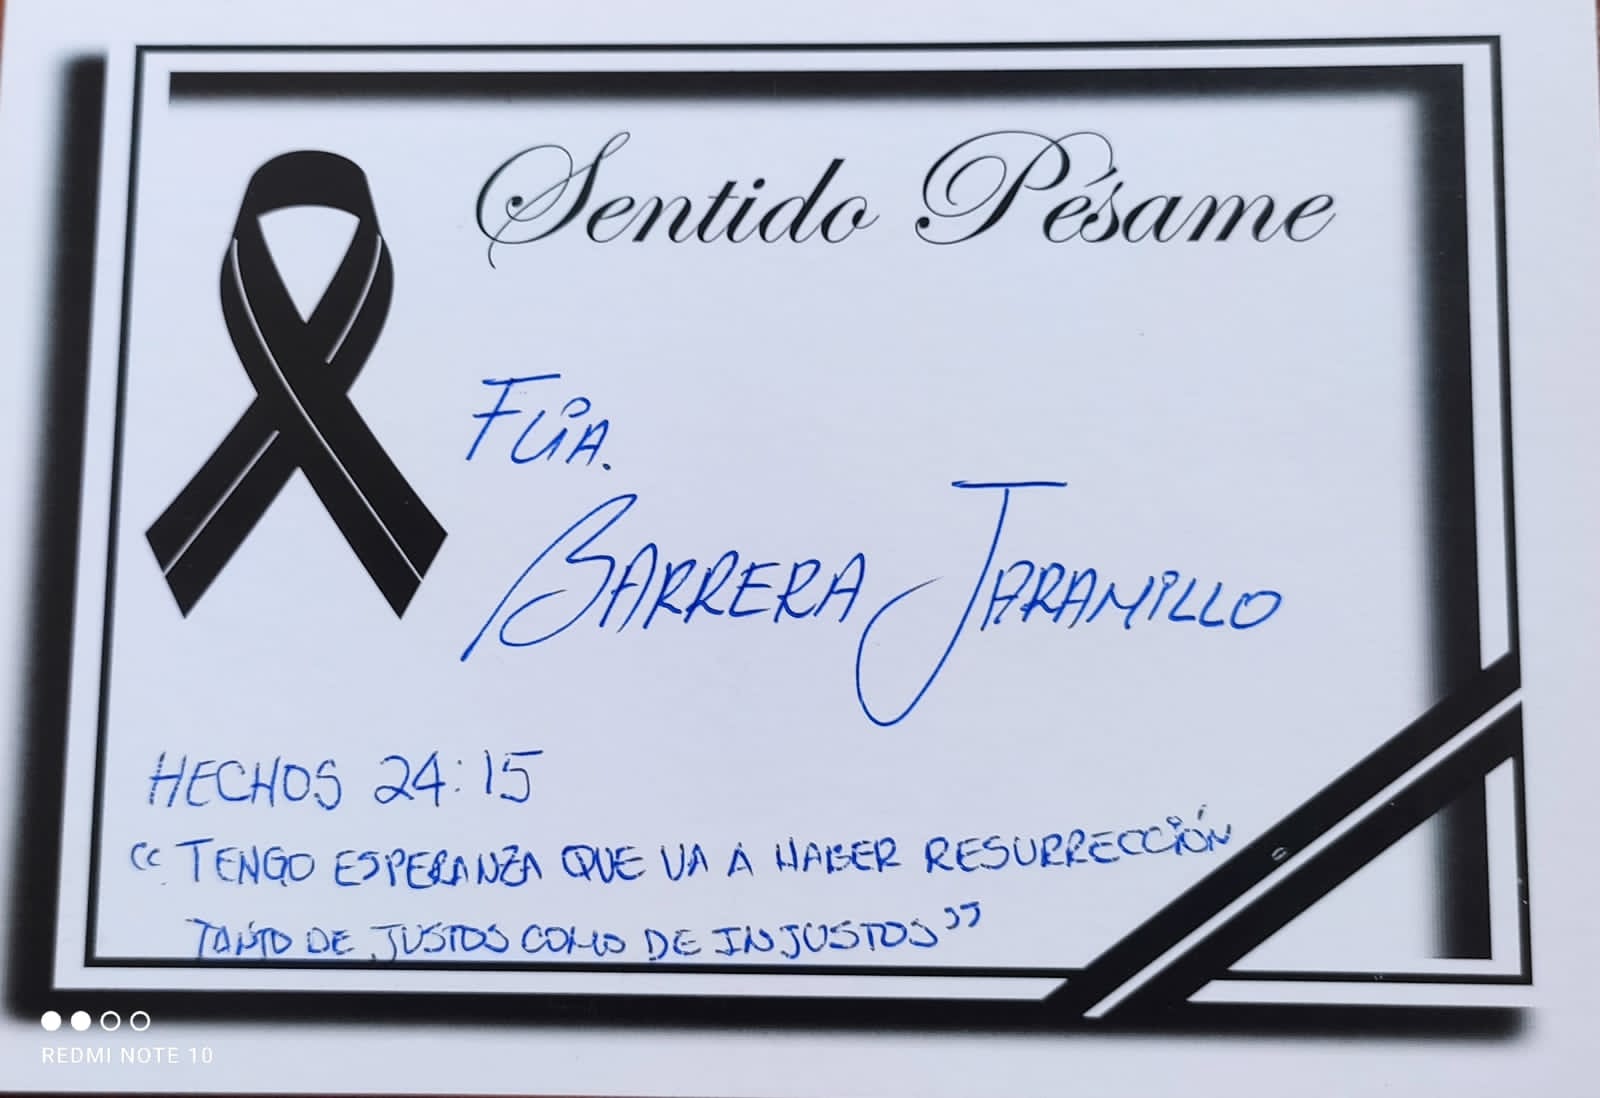 Sentido Pésame
FLIA.
BARRERA JARAMILLO
HECHOS 24:15
“TENGO ESPERANZA QUE VA A HABER RESURRECCIÓN
TANTO DE JUSTOS COMO DE INJUSTOS”
REDMI NOTE 10